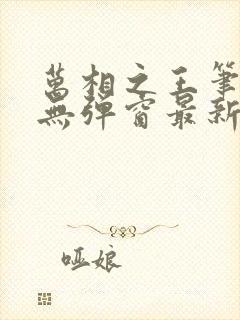 萬相之王筆
無彈窗最新
哑娘